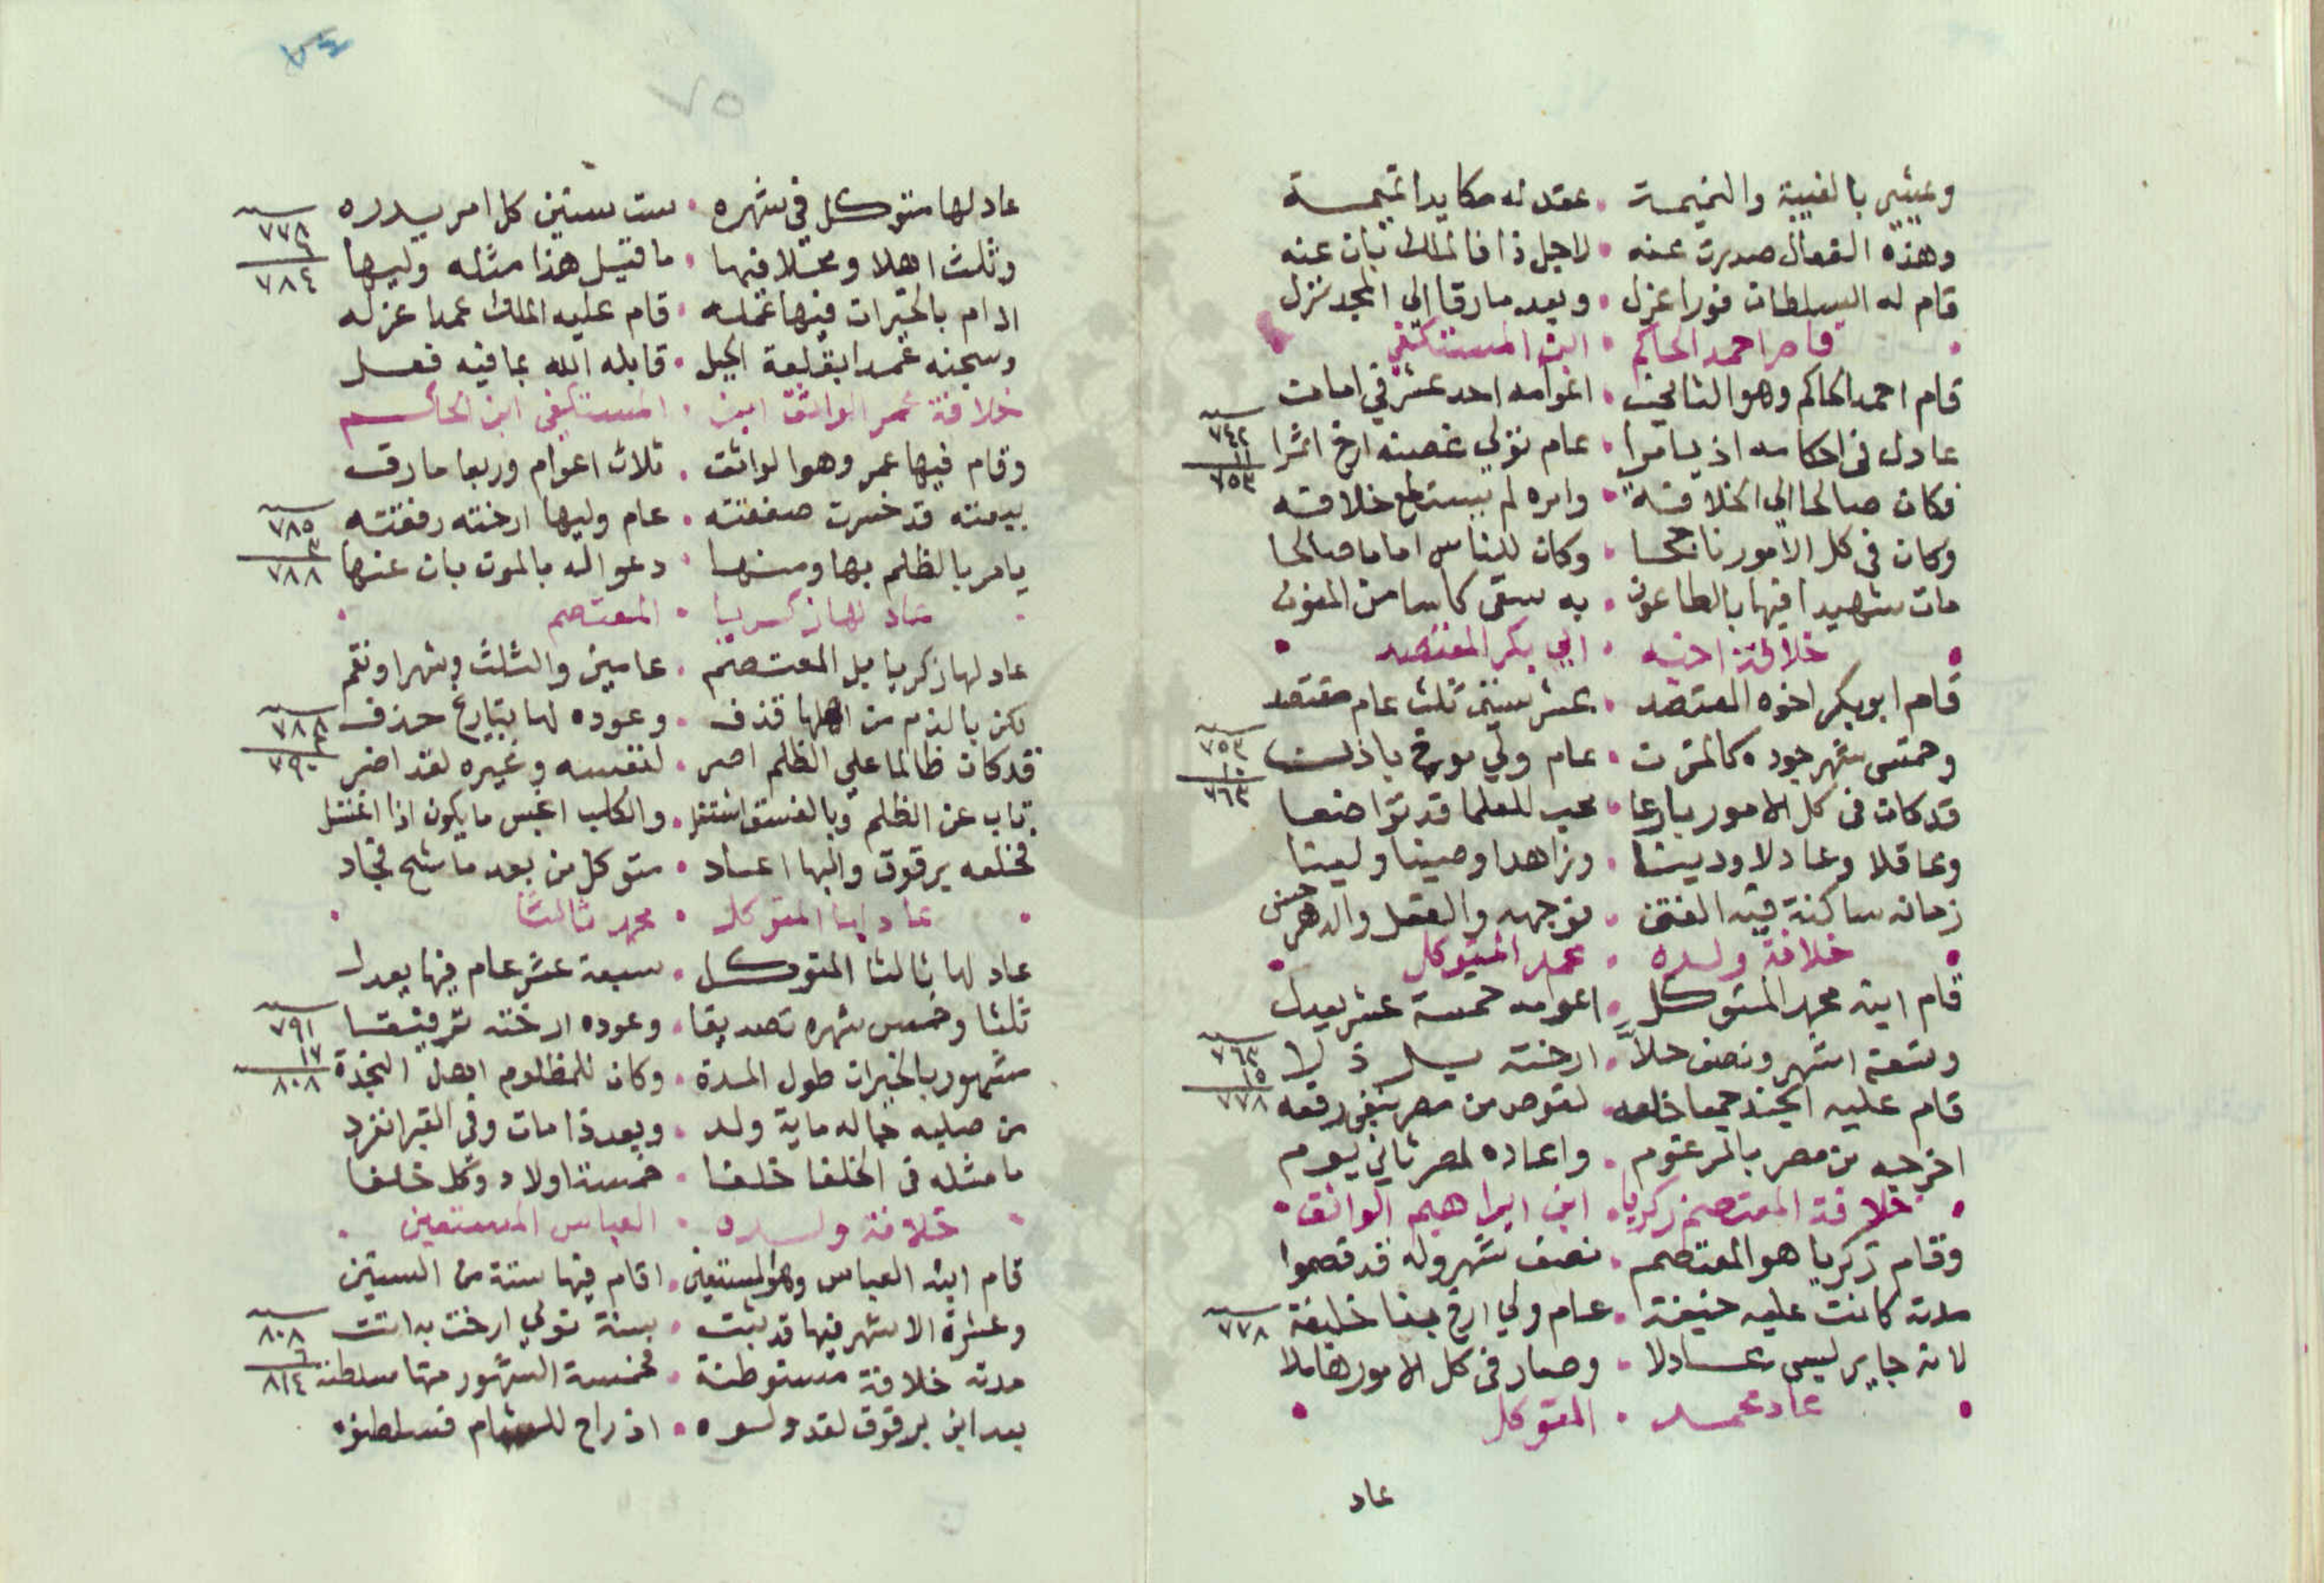 ويمشي بالغيبة والنميمة . عقد له مكايدا تميمة
وهذه الفعال صدرت عنه . لاجل ذا فالملك بان عنه
قام له السلطان فورا عزل . وبعد ما رقا الى المجد نزل
قام احمد الحاكم . ابن المستكفي
قام احمد الحاكم وهو الثاني . اعوامه احد عشر في
عادل في احكامه اذ يامرا . عام تولي غصنه ارخ اثمرا ٧٤٢ ١١ ٧٥٣
فكان صالحا الي الخلافة . وامره لم يستطع خلافه
وكان في كل الامور ناجحا . وكان للناس اماما صالحا
مات شهيدا فيها بالطاعون . به سقي كاسا من المنون
خلافة اخيه . ابي بكر المعتضد
قام ابو بكر اخوه المعتضد . عشر سنين ثلث عام مقتصد
وخمسي شهر جوده كالمزن . عام ولي مورخ ٧٥٣ ١٠ ٧٦٣
قد كان في كل الامور بارعا . محب للعلما قد تواضعا
وعاقلا وعادلا ودينا . وزاهدا وصينا ولينا
زمانه ساكنة فيه الفتن . توجهه والفعل والدهر حسن
خلافة ولده . محمد المتوكل
قام ابنه محمد المتوكل . اعوامه خمسة عشر يعدل
وتسعة اشهر ونصف حلا . ارخته ٧٦٣ ١٥ ٧٧٨
قام عليه الجند جميعا خلعه . لقوص من مصر نفي رفعه
اخرجه من مصر بالمرغوم . واعاده لمصر ثاني يوم
خلافة المعتصم زكريا . ابن ابراهيم الواثق
وقام زكريا هو المعتصم . نصف شهر وله قد قصموا
مدته كانت عليه خيفة . عام ولي ارخ خليفة ٧٧٨
لانه جاير ليس عادلا . وصار في كل الامور هاملا
عاد محمد . المتوكل
عاد
٧٤
٧٥
عاد لها متوكل في شهره . ست سنين كل امر يدره ٧٧٨ ٦ ٧٨٤
وثلث اهلا ومحلا فيها . ما قيل هذا مثله وليها
ادام بالخيرات فيها عمله . قام عليه الملك عمدا عزله
وسجنه عمدا بقلعة الجبل . قابله الله بما فيه فعل
خلافة عمر الواثق ابن . المستكفي ابن الحاكم
وقام فيها عمر وهو الواثق . ثلاث اعوام وربعا مارق
بيعته قد خسرت صفقته . عام وليها ارخته رفقته ٧٨٥ ٣ ٧٨٨
يامر بالظلم بها ومنها . دعوا له بالموت بان عنها
عاد لها زكريا . المعتصم
عاد لها زكريا بل المعتصم . عامين والثلث وشهرا ونقم
لكن بالذم من اهلها قذف . وعوده لها بتاريخ حذف ٧٨٨ ٢ ٧٩٠
قد كان ظالما علي الظلم اصر . لنفسه وغيره لقد اضر
تاب عن الظلم وبالفسق اشتغل . والكلب انجس ما يكون اذا اغتسل
فخلعه برقوق واليها اعاد . متوكل من بعد ما شح فجاد
عاد لها المتوكل . محمد ثالثا
عاد لها ثالثا المتوكل . سبعة عشر عام فيها يعدل
ثلثا وخمس شهره تصديقا . وعوده ارخته ترفيقا ٧٩١ ١٧ ٨٠٨
مشهور بالخيرات طول المدة . وكان للمظلوم اهل النجدة
من صلبه جا له ماية ولد . وبعد ذا مات وفي القبر انفرد
ما مثله في الخلفا خلفا . خمسة اولاد وكل خلفا
خلافة ولده . العباس المستعين
قام ابنه العباس وهو المستعين . اقام فيها ستة من السنين
وعشرة الاشهر فيها قد ثبت . بسنة تولي ارخت بدات ٨٠٨ ٦ ٨١٤
مدته خلافة مستوطنة . فخمسة الشهور منها سلطنه
بعد ابن برقوق لقد ولوه . اذ راح للشام فسلطنوه